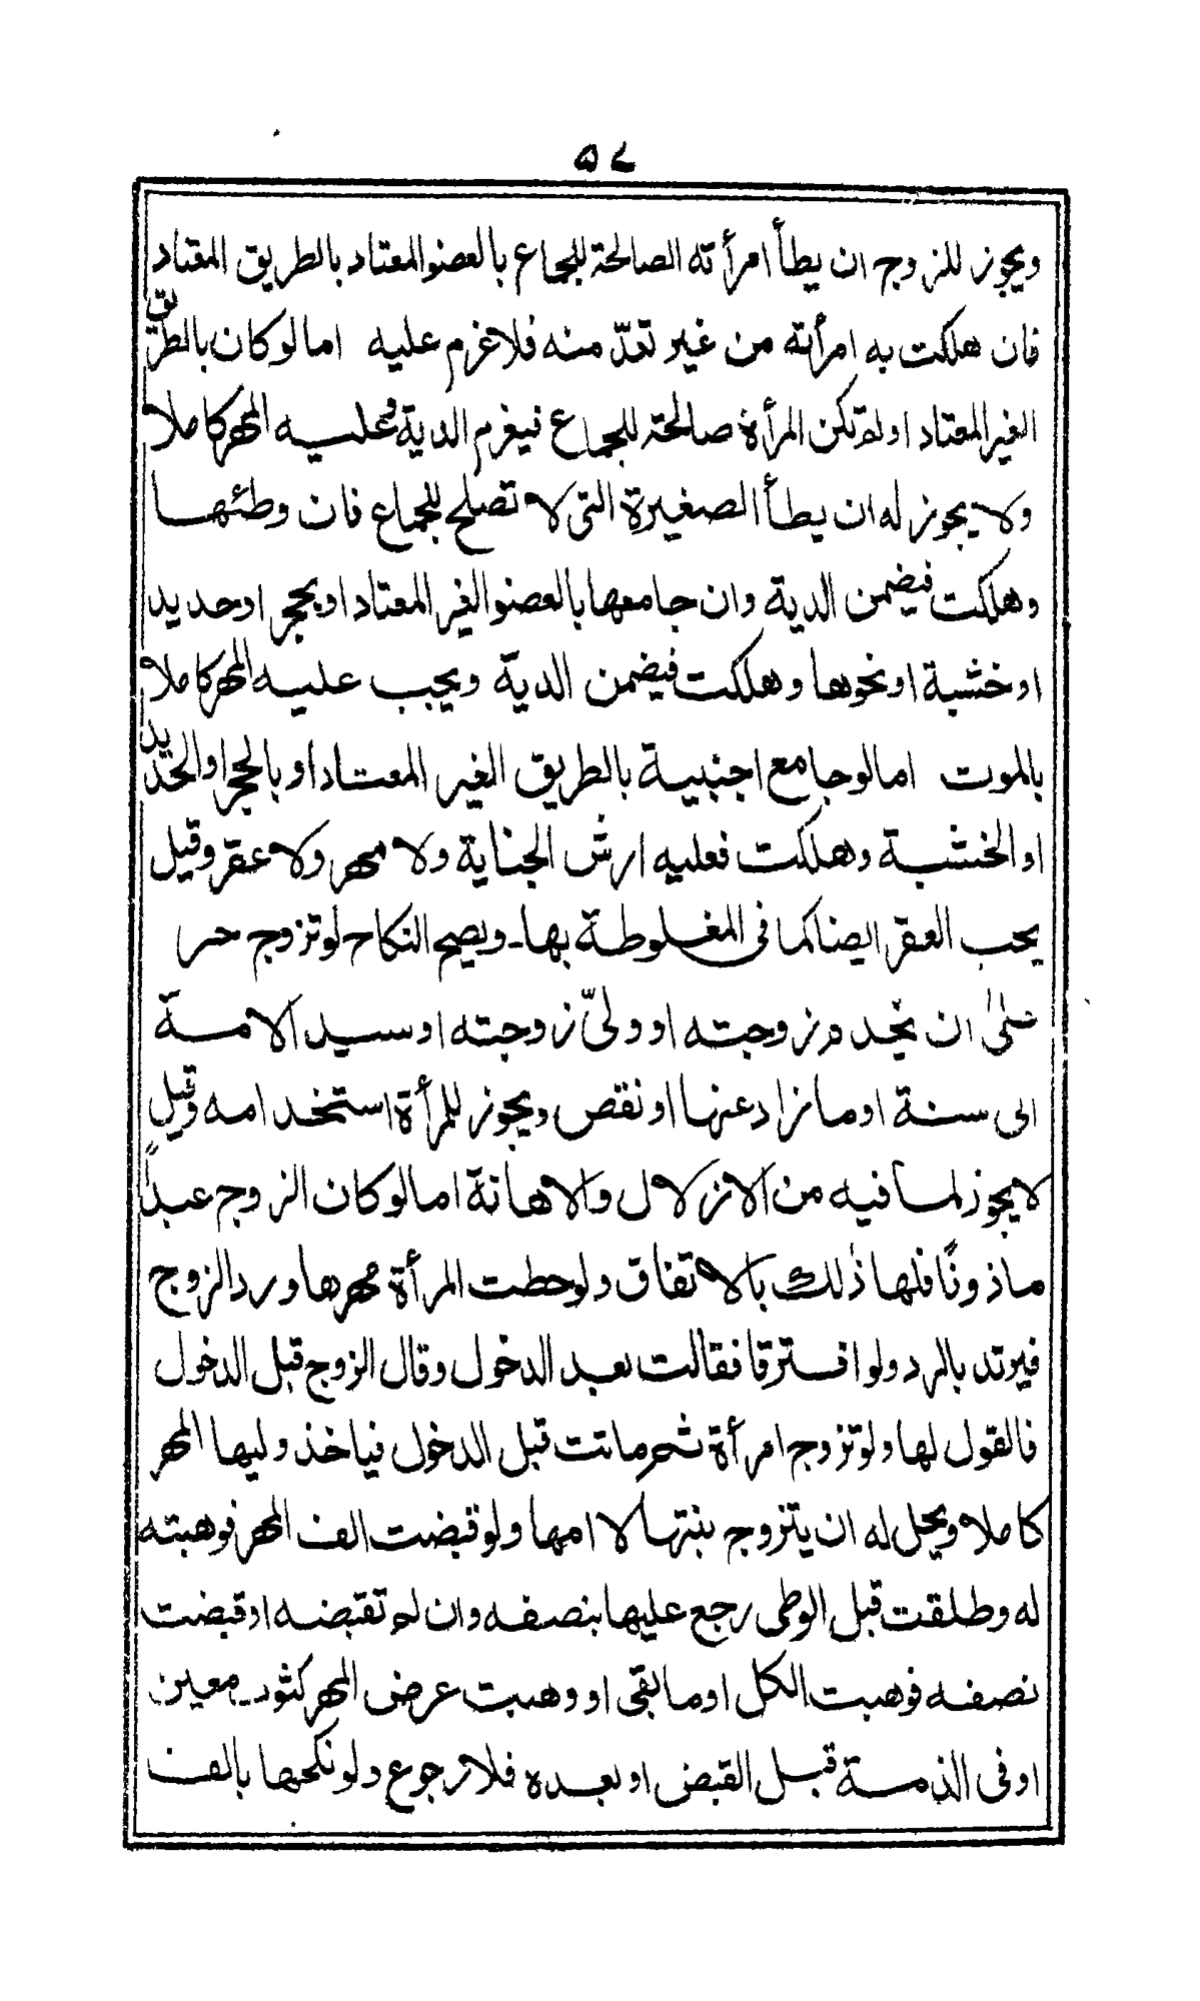 ٥٧
ويجوز للزوج ان يطأ امرأته الصالحة للجماع بالعضو المعتاد بالطريق المعتاد
فان هلكت به امرأته من غير تعدّ منه فلا غرم عليه اما لو كان بالطريق
الغير المعتاد او لم تكن المرأة صالحة للجماع فيغرم الدية وعليه المهر كاملا
ولا يجوز له ان يطأ الصغيرة التى لا تصلح للجماع فان وطئها
وهلكت فيضمن الدية وان جامعها بالعضو الغير المعتاد او بحجر او حديد
او خشبة او نحوها وهلكت فيضمن الدية ويجب عليه المهر كاملا
بالموت اما لو جامع اجنبية بالطريق الغير المعتاد او بالحجر او الحديد
او الخشبة وهلكت فعليه ارش الجناية ولا مهر ولا عقر وقيل
يجب العقر ايضا كما فى المغلوطة بها۔ ويصح النكاح لو تزوج حر
علىٰ ان يخدم زوجته او ولىّ زوجته او سيد الامة
الى سنة او ما زاد عنها او نقص ويجوز للمرأة استخدامه وقيل
لا يجوز لما فيه من الازلال والاهانة اما لو كان الزوج عبداً
ماذونًا فلها ذٰلك بالاتفاق ولو حطت المرأة مهرها ورد الزوج
فيرتد بالرد ولو افترقا فقالت بعد الدخول وقال الزوج قبل الدخول
فالقول لها ولو تزوج امرأة ثم ماتت قبل الدخول فياخذ وليها المهر
كاملا ويحل له ان يتزوج بنتها لا امها ولو قبضت الف المهر فوهبته
له وطلقت قبل الوطى رجع عليها بنصفه وان لم تقبضه او قبضت
نصفه فوهبت الكل او ما بقى او وهبت عرض المهر كثوب معين
او فى الذمة قبل القبض او بعده فلا رجوع ولو نكحها بالف